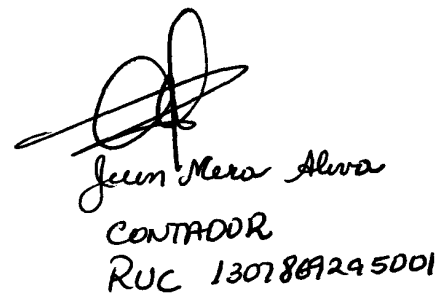 Juan Mera Alava
CONTADOR
RUC 1307869295001